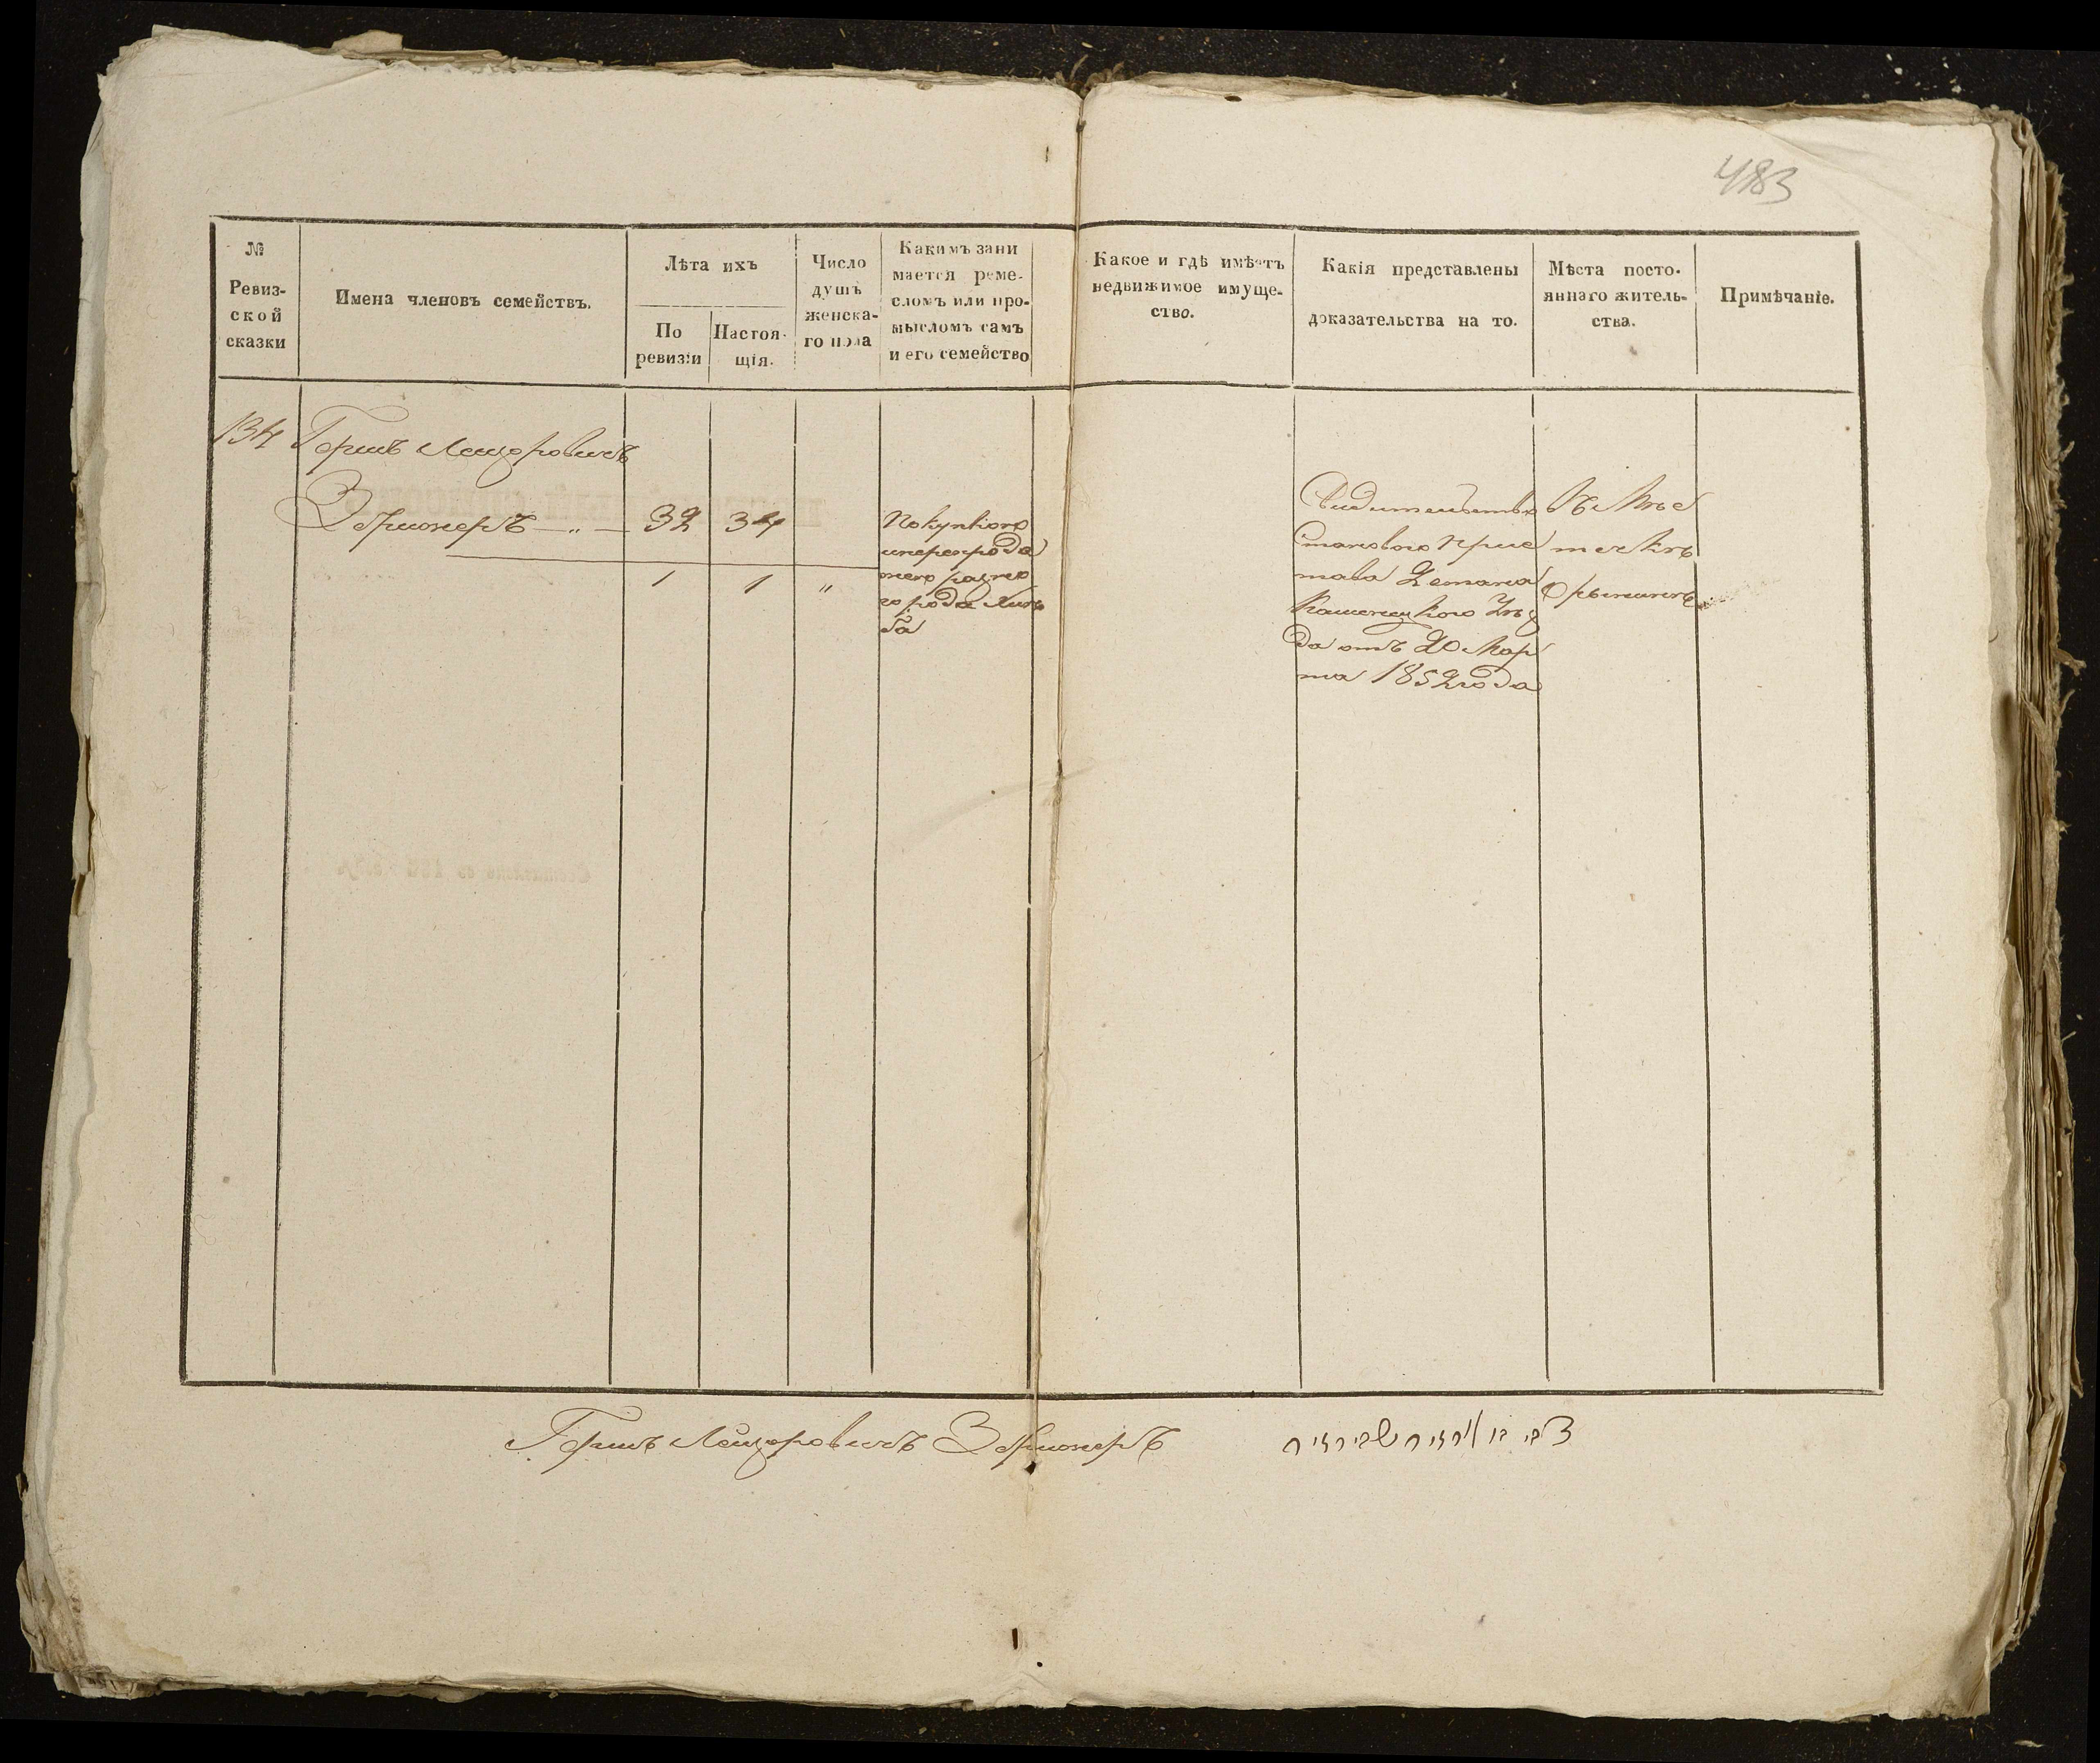 483
№
Ревиз-
ской
сказки
Имена членовъ семействъ.
Лѣта ихъ
По
ревизіи
Настоя-
щія.
Число
душъ
женска-
го пола
Какимъ зани
мается реме-
сломъ или про-
мысломъ самъ
и его семейство
Какое и гдѣ имѣетъ
недвижимое имуще-
ство.
Какія представлены
доказательства на то.
Мѣста посто-
яннаго житель-
ства.
Примѣчаніе.
134
Гершъ Лейзоровичъ
32
34
1
1
"
Покупкою
и перепрода
жею разно
го рода хлѣ
ба
Свидительство
Становаго прис
тава 2 стана
Каменецкого Уѣз
да отъ 20 Мар
та 1852 года
Въ Мѣс
течкѣ
Орынинѣ
Гершъ Лейзоровичъ
צבי בן